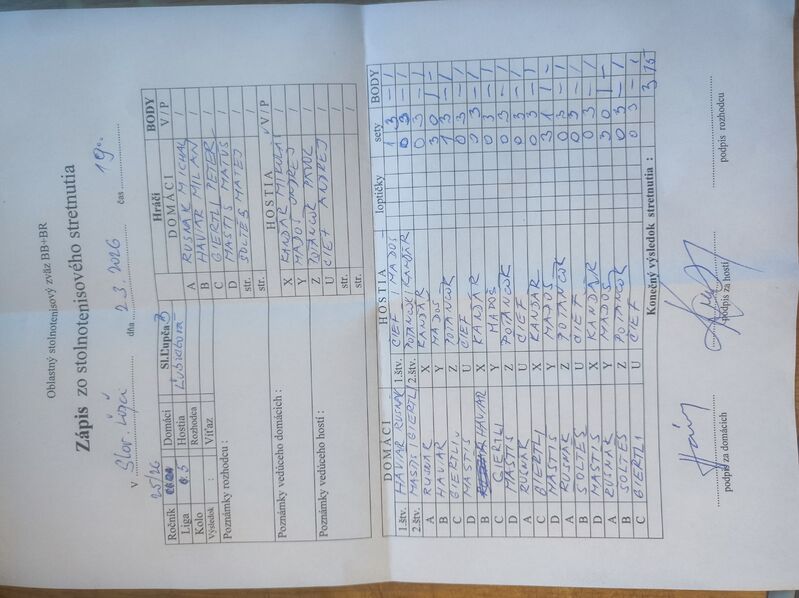 Oblastný stolnotenisový zväz BB+BR
Zápis zo stolnotenisového stretnutia
v Slov. Ľupči dňa 2.3.2026 čas 19oo
Ročník 25/26 Domáci Sl.Ľupča B
Liga 5 Hostia Ľubietová
Kolo Rozhodca
Výsledok : Víťaz
Poznámky rozhodcu :
Poznámky vedúceho domácich :
Poznámky vedúceho hostí :
Hráči BODY
DOMÁCI V / P
A RUSNÁK MICHAL /
B HAVIAR MILAN /
C GIERTLI PETER /
D MASTIS MATÚŠ /
str. SOLTÉS MATEJ /
str. /
HOSTIA V / P
X KANDÁR MIKULÁŠ /
Y MADOŠ ONDREJ /
Z POTANČOK PAVOL /
U CIEF ANDREJ /
str. /
str. /
DOMÁCI HOSTIA loptičky sety BODY
1.štv. HAVIAR RUSNÁK 1.štv. CIEF / MADOŠ 1 3 – 1
2.štv. MASTIS GIERTLI 2.štv. POTANČOK / KANDÁR 0 3 – 1
A RUSNÁK X KANDÁR 0 3 – 1
B HAVIAR Y MADOŠ 3 0 1 –
C GIERTLI Z POTANČOK 1 3 – 1
D MASTIS U CIEF 0 3 – 1
B HAVIAR X KANDÁR 3 – 1
C GIERTLI Y MADOŠ 0 3 – 1
D MASTIS Z POTANČOK 0 3 – 1
A RUSNÁK U CIEF 0 3 – 1
C GIERTLI X KANDÁR 0 3 – 1
D MASTIS Y MADOŠ 3 1 1 –
A RUSNÁK Z POTANČOK 0 3 – 1
B SOLTÉS U CIEF 0 3 – 1
D MASTIS X KANDÁR 0 3 – 1
A RUSNÁK Y MADOŠ 3 0 1 –
B SOLTES Z POTANČOK 0 3 – 1
C GIERTLI U CIEF 0 3 – 1
Konečný výsledok stretnutia : 3 15
podpis za domácich podpis za hostí podpis rozhodcu